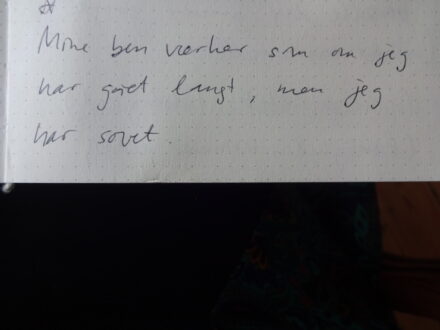 Mine ben værker som om jeg
har gået langt, men jeg
har sovet.